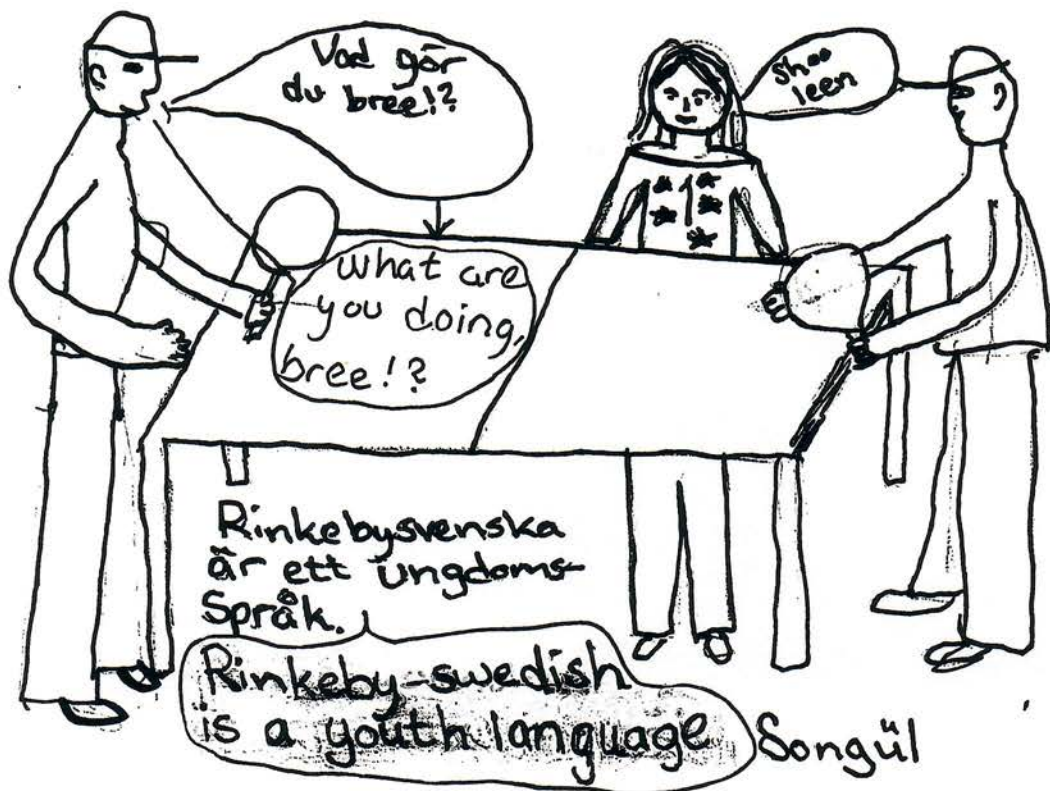 Vad gör
du bree!?
shoo
leen
1
what are
you doing,
bree!?
Rinkebysvenska
är ett ungdoms-
språk.
Rinkeby-swedish
is a youth language
Songül